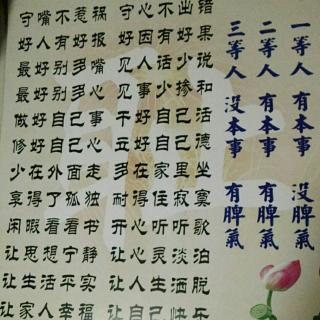 一等人 有本事 沒脾氣
二等人 有本事 有脾氣
三等人 沒本事 有脾氣
守嘴不惹祸 守心不出错
好人有好报 好因有好果
最好别多嘴 见人话少说
最好别多事 见事少掺和
做好自己事 干好自己活
修好自己心 立好自己德
少在外面走 多在家里坐
享得了孤独 耐得住寂寞
闲暇看看书 开心听听歌
让思想宁静 让心灵淡泊
让生活平实 让人生洒脱
让家人幸福 让自己快乐